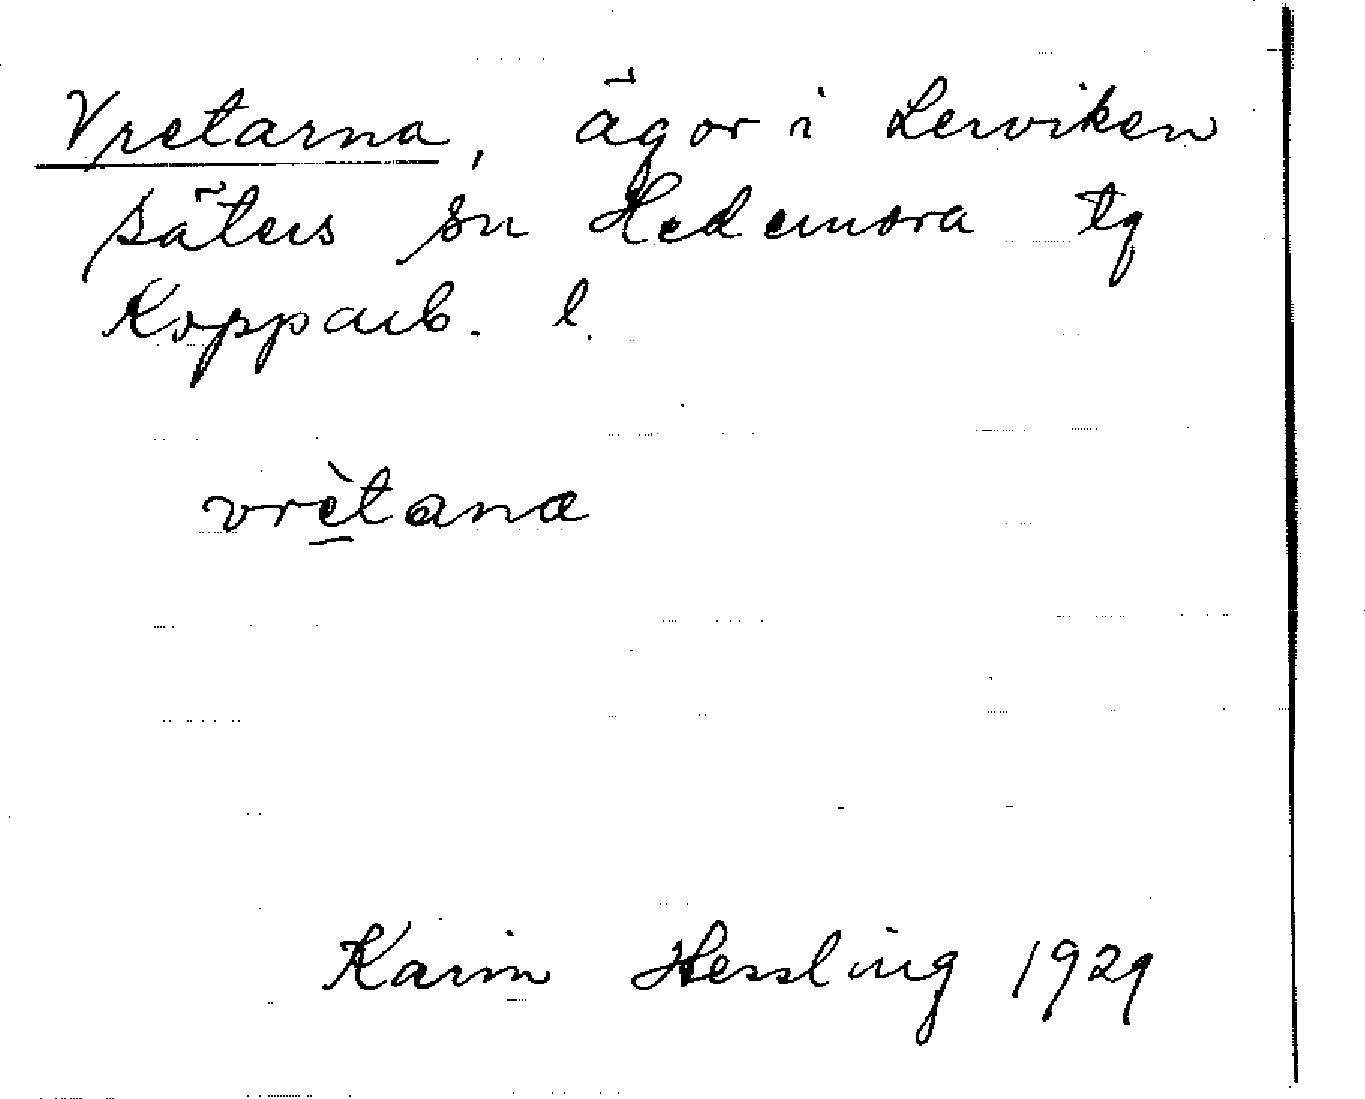 Vretarna, ägor i Lerviken
Säters sn Hedemora tg
Kopparb. l.
vrètana
Karin Hessling 1929